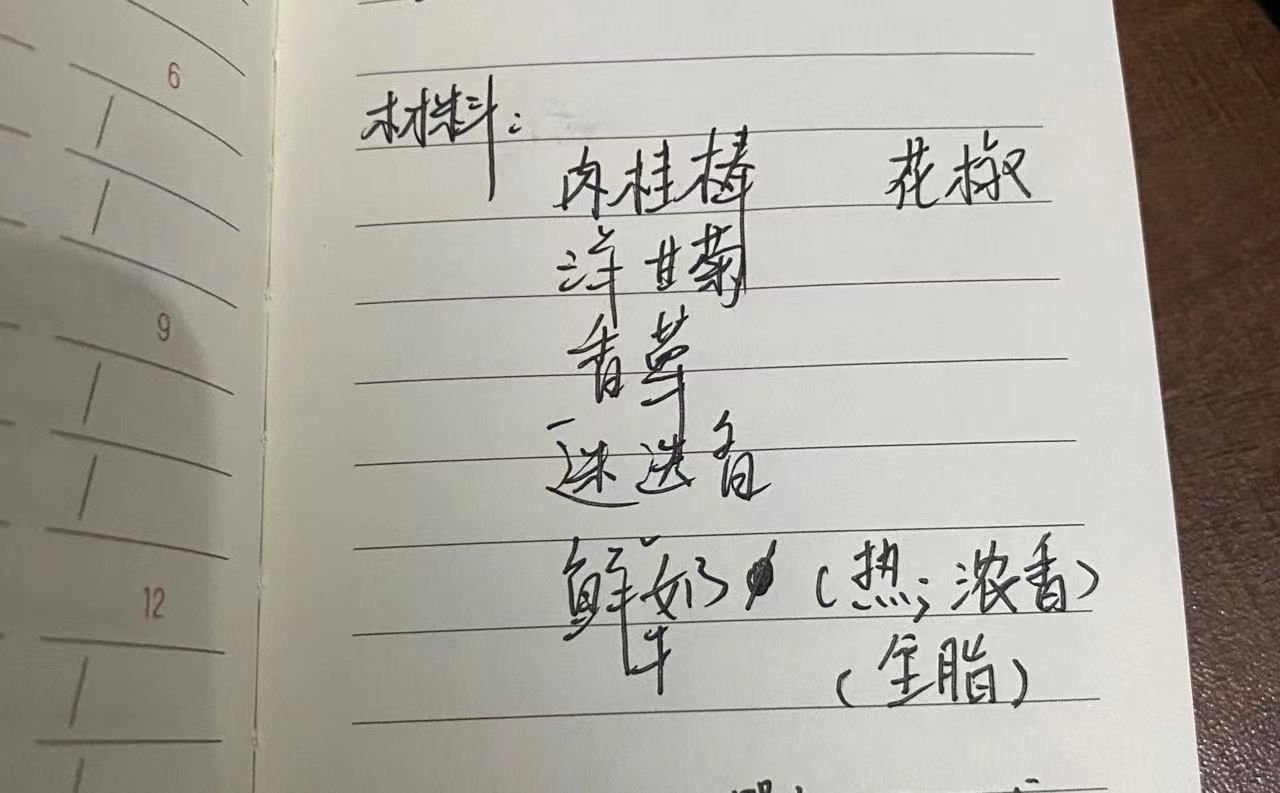 6
9
12
材料:
肉桂棒 花椒
洋甘菊
香草
迷迭香
鲜牛奶 (热;浓香)
(全脂)